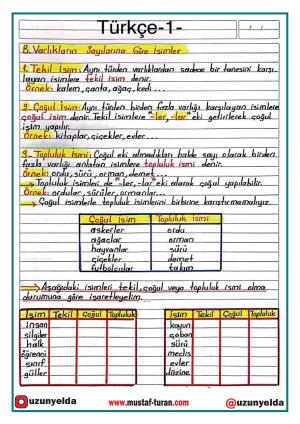 Türkçe-1-
/ /
B. Varlıkların Sayılarına Göre İsimler
1. Tekil İsim: Aynı türden varlıklardan sadece bir tanesini karşı-
layan isimlere tekil isim denir.
Örnek: kalem, çanta, ağaç, kedi...
2. Çoğul İsim: Aynı türden birden fazla varlığı karşılayan isimlere
çoğul isim denir. Tekil isimlere "-ler, -lar" eki getirilerek çoğul
isim yapılır.
Örnek: kitaplar, çiçekler, evler...
3. Topluluk İsmi: Çoğul eki almadıkları halde sayı olarak birden
fazla varlığı anlatan isimlere topluluk ismi denir.
Örnek: ordu, sürü, orman, demet...
Topluluk isimleri de "-ler, -lar" eki alarak çoğul yapılabilir.
Örnek: ordular, sürüler, ormanlar...
Çoğul isimlerle topluluk isimlerini birbirine karıştırmamalıyız.
Çoğul İsim Topluluk ismi
askerler ordu
ağaçlar orman
hayvanlar sürü
çiçekler demet
futbolcular takım
Aşağıdaki isimleri tekil, çoğul veya topluluk ismi olma
durumuna göre işaretleyelim.
İsim Tekil Çoğul Topluluk
insan
silgiler
halk
öğrenci
sınıf
güller
İsim Tekil Çoğul Topluluk
koyun
çoban
sürü
meclis
evler
düzine
uzunyelda
www.mustaf-turan.com
@uzunyelda